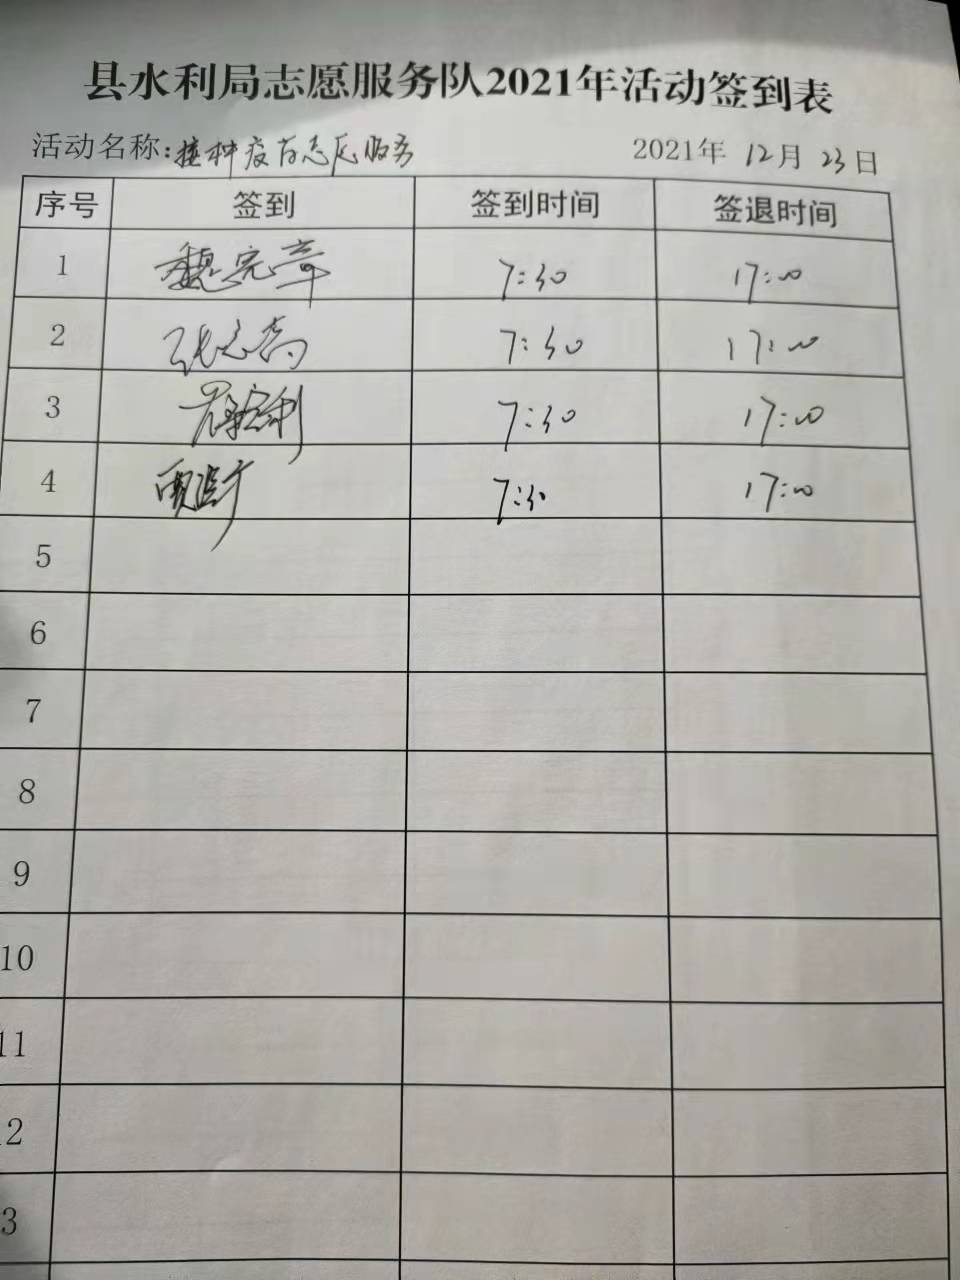 县水利局志愿服务队2021年活动签到表
活动名称:接种疫苗志愿服务 2021年12月23日
序号 签到 签到时间 签退时间
1 魏完章 7:30 17:00
2 张志高 7:30 17:00
3 7:30 17:00
4 7:30 17:00
5
6
7
8
9
10
11
2
3